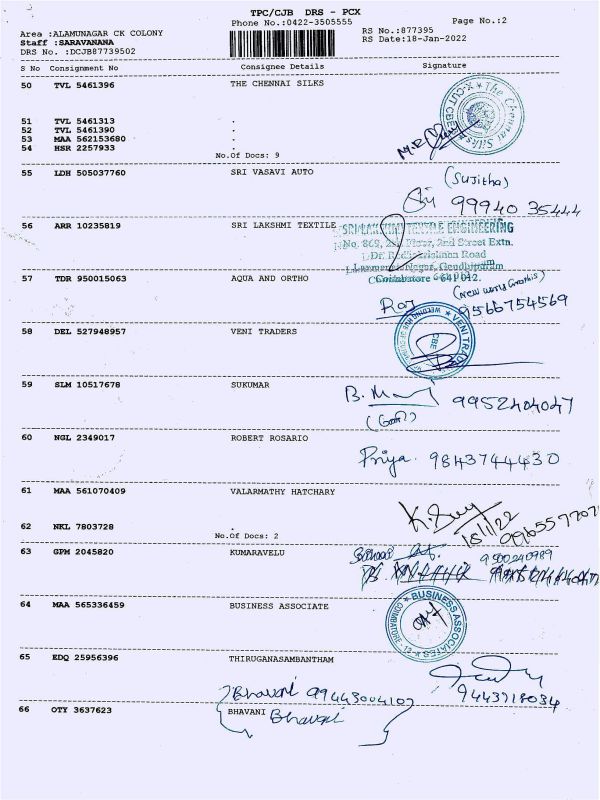 TPC/CJB DRS - PCX
Phone No.:0422-3505555
Page No.:2
Area :ALAMUNAGAR CK COLONY
RS No.:877395
Staff :SARAVANANA
RS Date:18-Jan-2022
DRS No. :DCJB87739502
S No Consignment No Consignee Details Signature
50 TVL 5461396 THE CHENNAI SILKS
The Chennai Silks
X-CUT CBE
51 TVL 5461313 .
52 TVL 5461390 .
53 MAA 562153680 .
54 HSR 2257933 .
No.Of Docs: 9
55 LDH 505037760 SRI VASAVI AUTO
(Sujitha)
99940 35444
56 ARR 10235819 SRI LAKSHMI TEXTILE
SRI LAKSHMI TEXTILE ENGINEERING
No. 869, Floor, 2nd Street Extn.
Dr. Radhakrishna Road
Gandhipuram
Coimbatore - 641 012.
57 TDR 950015063 AQUA AND ORTHO
Roj
9566754569
58 DEL 527948957 VENI TRADERS
VENI TRADE
CBE
59 SLM 10517678 SUKUMAR
B. 9952404047
60 NGL 2349017 ROBERT ROSARIO
Priya. 9843744430
61 MAA 561070409 VALARMATHY HATCHARY
18/1/22
62 NKL 7803728 .
No.Of Docs: 2
63 GPM 2045820 KUMARAVELU
64 MAA 565336459 BUSINESS ASSOCIATE
BUSINESS ASSOCIATES
COIMBATORE-12
65 EDQ 25956396 THIRUGANASAMBANTHAM
9443718034
Bhavani 09443004107
66 OTY 3637623 BHAVANI
Bhavani